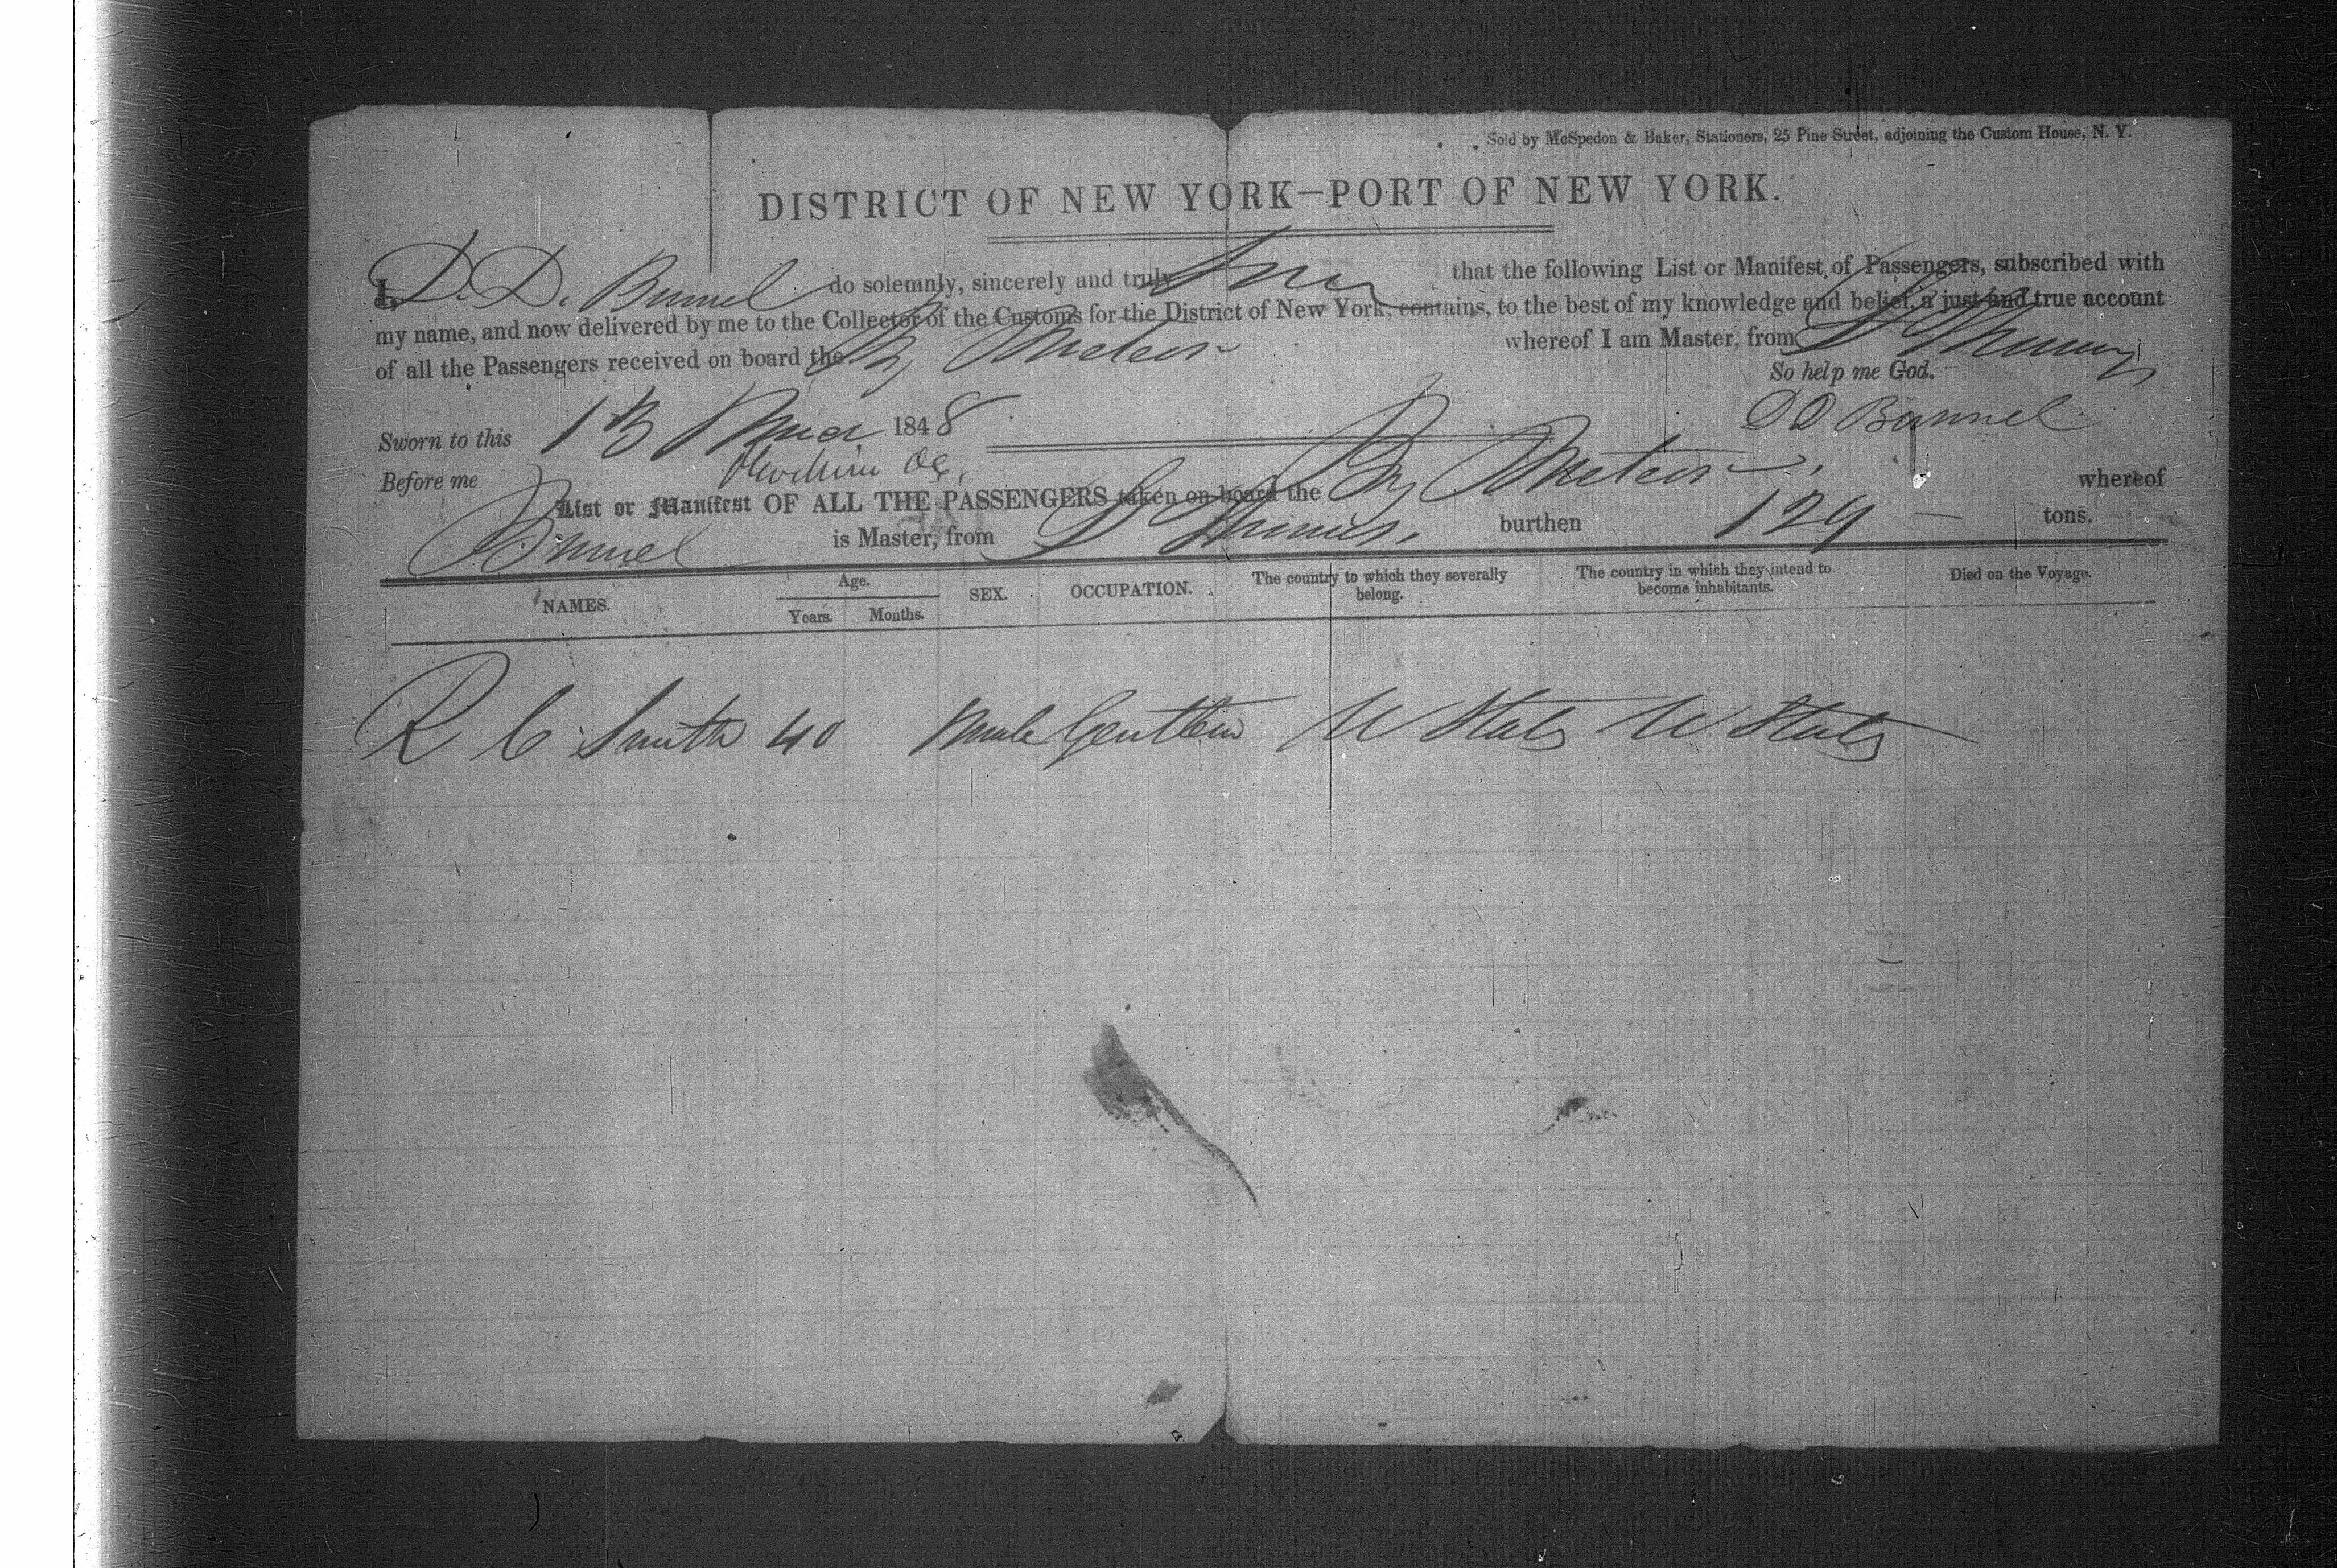 Sold by McSpedon & Baker, Stationers, 25 Pine Street, adjoining the Custom House, N. Y.
DISTRICT OF NEW YORK—PORT OF NEW YORK.
I, D. D. Bunnel do solemnly, sincerely and truly that the following List or Manifest of Passengers, subscribed with
my name, and now delivered by me to the Collector of the Customs for the District of New York, contains, to the best of my knowledge and belief, a just and true account
of all the Passengers received on board the Meteor whereof I am Master, from St Thomas
So help me God.
Sworn to this 13 1848 D D Bunnel
Before me
List or Manifest OF ALL THE PASSENGERS taken on board the Meteor whereof
Bunnel is Master, from St Thomas, burthen 129 tons.
NAMES. Age. Years. Months. SEX. OCCUPATION. The country to which they severally belong. The country in which they intend to become inhabitants. Died on the Voyage.
R C Smith 40 Male Gentlem U States U States